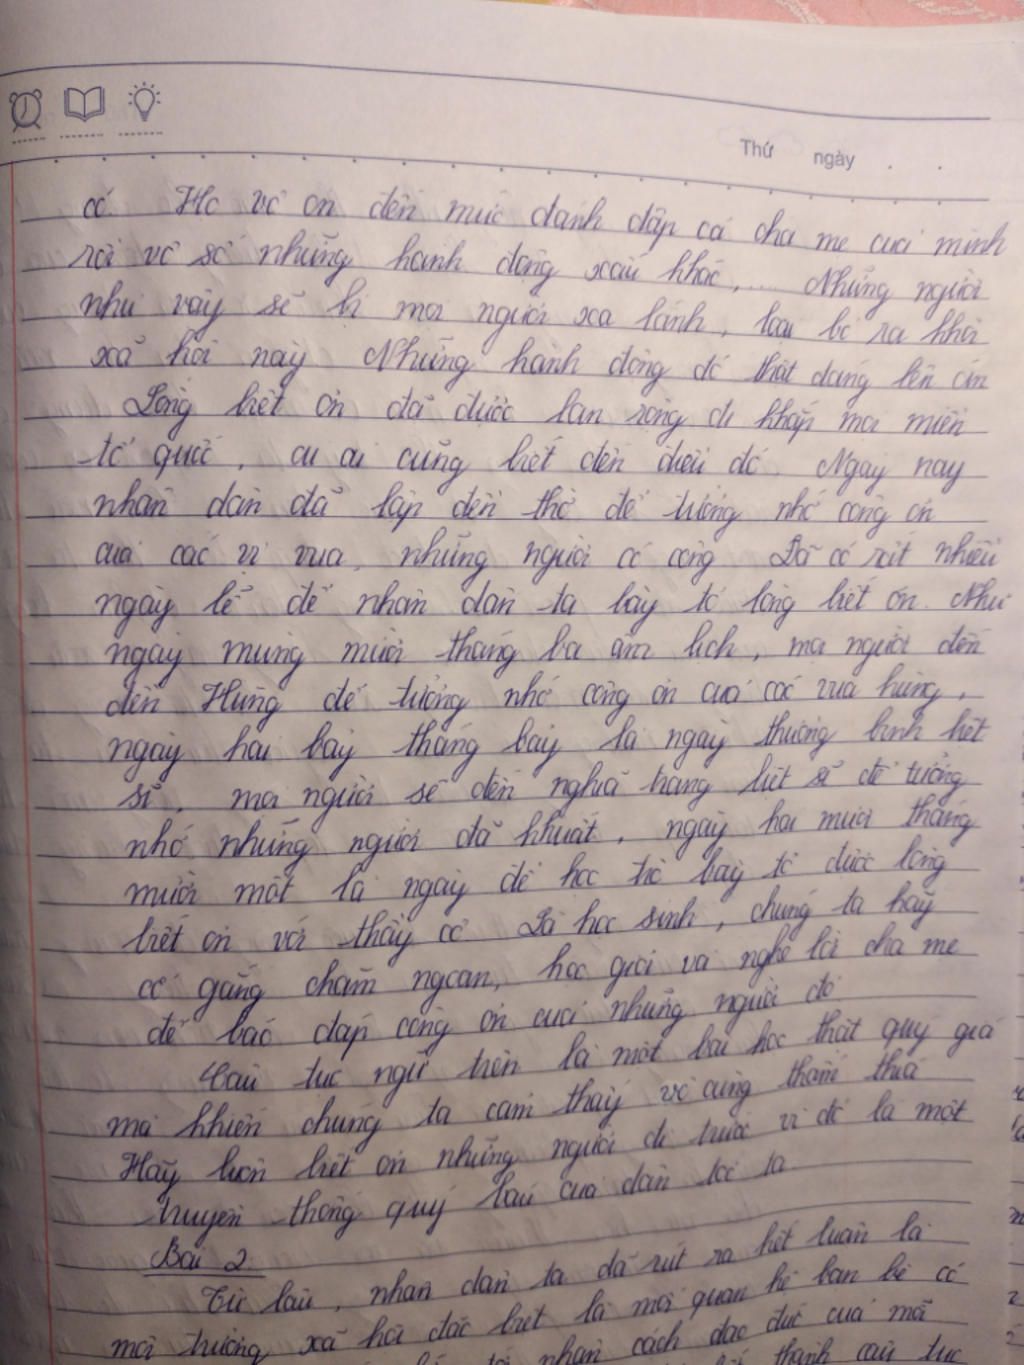 Thứ ngày
có. Họ vô ơn đến mức đánh đập cả cha mẹ của mình
rồi vô số những hành động xấu khác,.... Những người
như vậy sẽ bị mọi người xa lánh, loại bỏ ra khỏi
xã hội này. Những hành động đó thật đáng lên án
Lòng biết ơn đã được lan rộng đi khắp mọi miền
tổ quốc, ai ai cũng biết đến điều đó. Ngày nay
nhân dân đã lập đền thờ để tưởng nhớ công ơn
của các vị vua, những người có công. Đã có rất nhiều
ngày lễ để nhân dân ta bày tỏ lòng biết ơn. Như
ngày mùng mười tháng ba âm lịch, mọi người đến
đền Hùng để tưởng nhớ công ơn của các vua hùng,
ngày hai bảy tháng bảy là ngày thương binh liệt
sĩ, mọi người sẽ đến nghĩa trang liệt sĩ để tưởng
nhớ những người đã khuất, ngày hai mươi tháng
mười một là ngày để học trò bày tỏ được lòng
biết ơn với thầy cô. Là học sinh, chúng ta hãy
cố gắng chăm ngoan, học giỏi và nghe lời cha mẹ
để báo đáp công ơn của những người đó
Câu tục ngữ trên là một bài học thật quý giá
mà khiến chúng ta cảm thấy vô cùng thấm thía
Hãy luôn biết ơn những người đi trước vì đó là một
truyền thống quý báu của dân tộc ta.
Bài 2
Từ lâu, nhân dân ta đã rút ra kết luận là
môi trường xã hội đặc biệt là mối quan hệ bạn bè có
tới nhân cách đạo đức của mỗi
thành câu tục